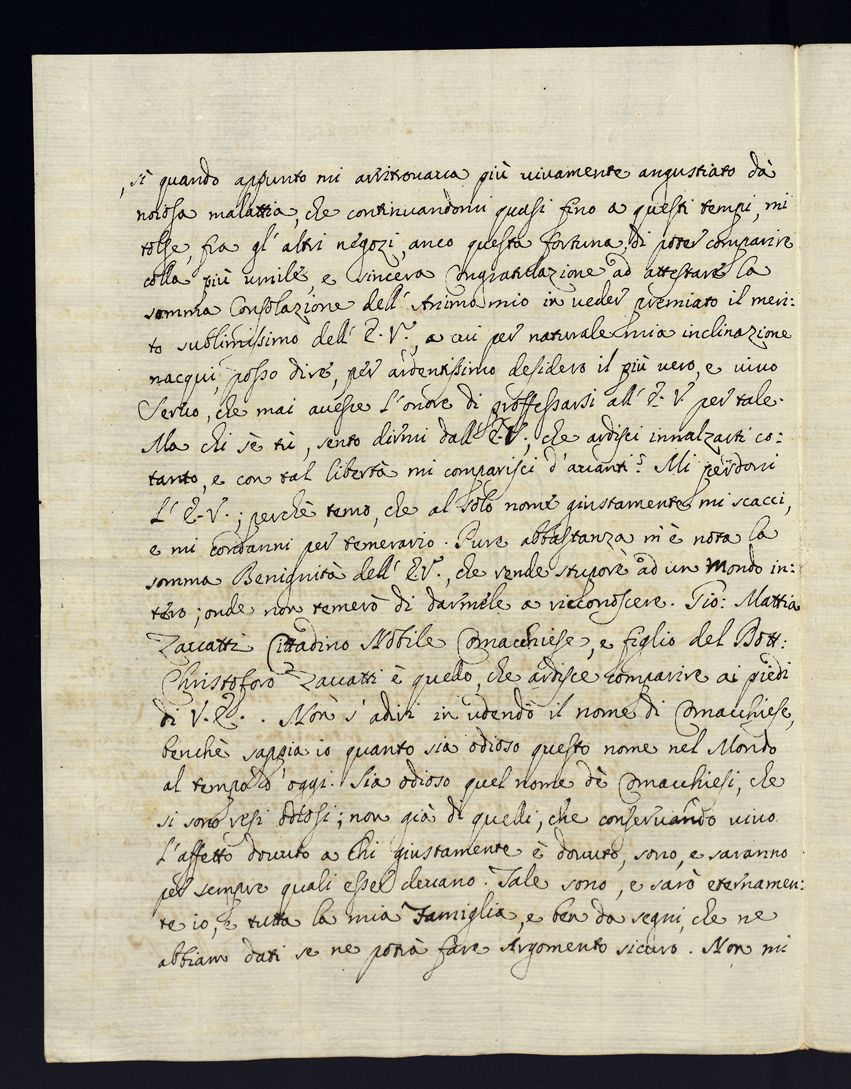 , sì quando appunto mi arritrovava più vivamente angustiato dà
noiosa malattia, che continuandomi quasi fino a questi tempi, mi
tolse, fra gl' altri negozi, anco questa fortuna, di poter comparire
colla più umile, e sincera Congratulazione ad attestare la
somma Consolazione dell' Animo mio in veder premiato il meri:
to sublimissimo dell' E.V., a cui per naturale mia inclinazione
nacqui, posso dire, per ardentissimo desiderio il più vero, e vivo
Servo, che mai avesse l'onore di proffessarsi all' E.V. per tale.
Ma chi sè tù, sento dirmi dall' E.V., che ardisci innalzarti co:
tanto, e con tal libertà mi comparisci d'avanti? Mi perdoni
L' E.V.; perchè temo, che al solo nome giustamente mi scacci,
e mi condanni per temerario. Pure abbastanza m'è nota la
somma Benignità dell' E.V., che rende stupore ad un Mondo in:
tero; onde non temerò di darmele a riconoscere. Gio: Mattia
Zavatti Cittadino Nobile Comacchiese, e figlio del Dott:
Christoforo Zavatti è quello, che ardisce comparire ai piedi
di V.E. . Non s'adiri in udendo il nome di Comacchiese,
benchè sappia io quanto sia odioso questo nome nel Mondo
al tempo d'oggi. Sia odioso quel nome dè Comacchiesi, che
si sono resi odiosi; non già di quelli, che conservando vivo
L'affetto dovuto a Chi giustamente è dovuto, sono, e saranno
per sempre quali esser devano. Tale sono, e sarò eternamen:
te io, e tutta la mia Famiglia, e ben da segni, che ne
abbiam dati se ne potrà fare Argomento sicuro. Non mi